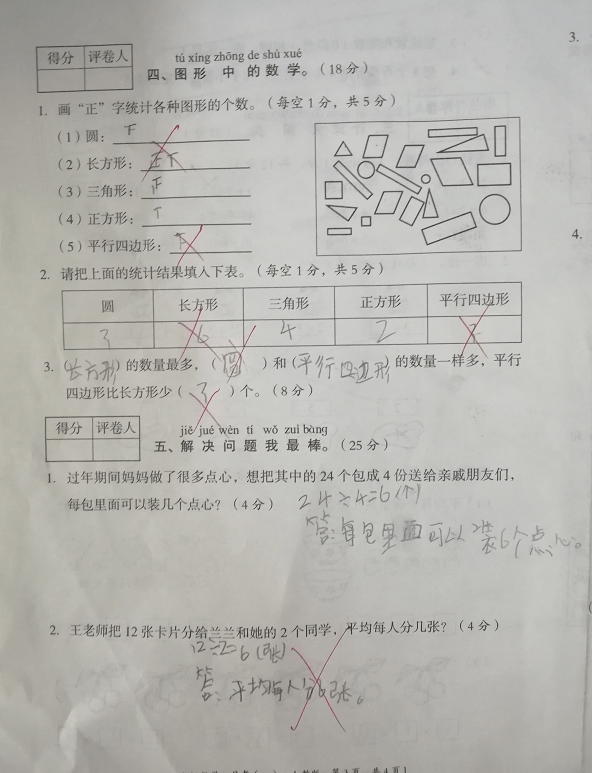 得分 评卷人
tú xíng zhōng de shù xué
四、图 形 中 的 数 学。（18 分）
1. 画“正”字统计各种图形的个数。（每空 1 分，共 5 分）
（1）圆：
（2）长方形：
（3）三角形：
（4）正方形：
（5）平行四边形：
2. 请把上面的统计结果填入下表。（每空 1 分，共 5 分）
圆 长方形 三角形 正方形 平行四边形
3 6 4 2
3. （长方形）的数量最多，（圆）和（平行四边形）的数量一样多，平行
四边形比长方形少（3）个。（8 分）
得分 评卷人
jiě jué wèn tí wǒ zuì bàng
五、解 决 问 题 我 最 棒。（25 分）
1. 过年期间妈妈做了很多点心，想把其中的 24 个包成 4 份送给亲戚朋友们，
每包里面可以装几个点心？（4 分） 24÷4=6（个）
答：每包里面可以装6个点心。
2. 王老师把 12 张卡片分给兰兰和她的 2 个同学，平均每人分几张？（4 分）
12÷2=6（张）
答：平均每人分6张。
3.
4.